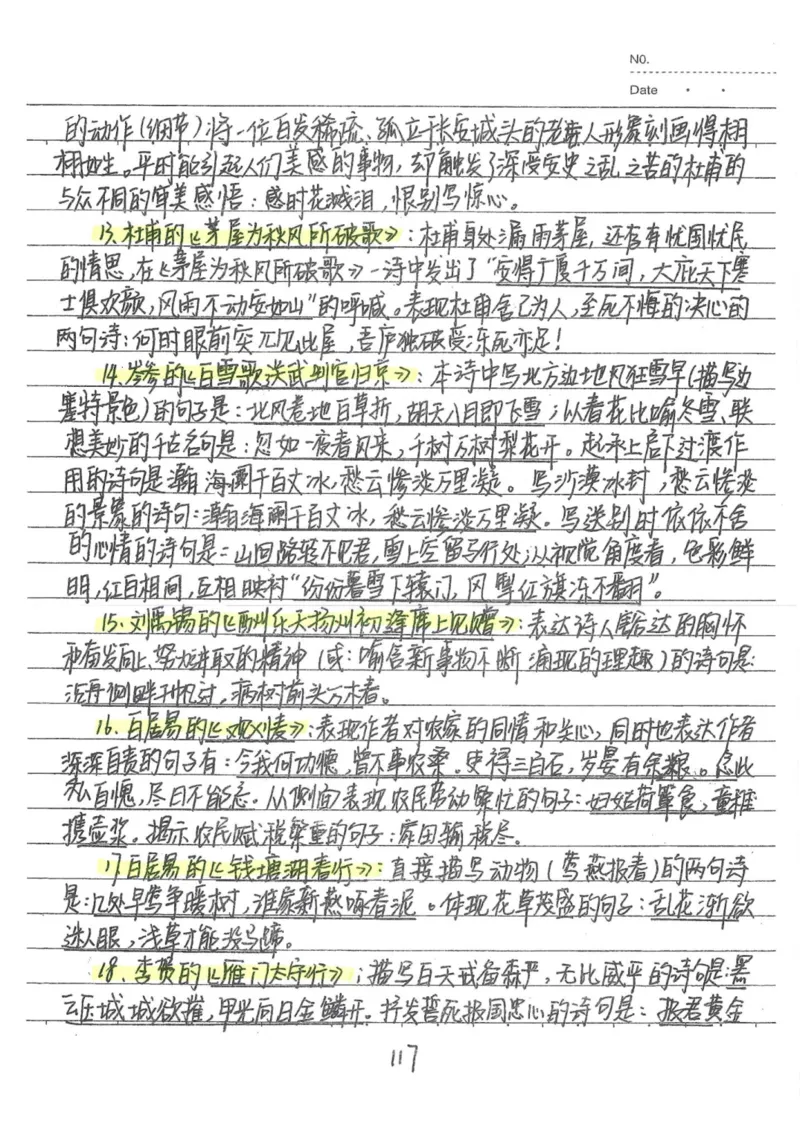 NO.
Date
的动作(细节)将一位白发稀疏、孤立于长安城头的老人形象刻画得栩
栩如生。平时能引起人们美感的事物,却触发了深受安史之乱之苦的杜甫的
与众不同的审美感悟:感时花溅泪,恨别鸟惊心。
13、杜甫的《茅屋为秋风所破歌》:杜甫身处漏雨茅屋,还存有忧国忧民
的情思,在《茅屋为秋风所破歌》一诗中发出了“安得广厦千万间,大庇天下寒
士俱欢颜,风雨不动安如山”的呼喊。表现杜甫舍己为人,至死不悔的决心的
两句诗:何时眼前突兀见此屋,吾庐独破受冻死亦足!
14、岑参的《白雪歌送武判官归京》:本诗中写北方边地风狂雪早(描写边
塞特景色)的句子是:北风卷地百草折,胡天八月即飞雪;以春花比喻冬雪、联
想美妙的千古名句是:忽如一夜春风来,千树万树梨花开。起承上启下过渡作
用的诗句是瀚海阑干百丈冰,愁云惨淡万里凝。写沙漠冰封,愁云惨淡
的景象的诗句:瀚海阑干百丈冰,愁云惨淡万里凝。写送别时依依不舍
的心情的诗句是:山回路转不见君,雪上空留马行处;从视觉角度看,色彩鲜
明,红白相间,互相映衬“纷纷暮雪下辕门,风掣红旗冻不翻”。
15、刘禹锡的《酬乐天扬州初逢席上见赠》:表达诗人豁达的胸怀
和奋发向上、努力进取的精神(或:喻含新事物不断涌现的理趣)的诗句是:
沉舟侧畔千帆过,病树前头万木春。
16、白居易的《观刈麦》:表现作者对农家的同情和关心,同时也表达作者
深深自责的句子有:今我何功德,曾不事农桑。吏得三百石,岁晏有余粮。念此
私自愧,尽日不能忘。从侧面表现农民劳动繁忙的句子:妇姑荷箪食,童稚
携壶浆。揭示农民赋税繁重的句子:家田输税尽。
17白居易的《钱塘湖春行》:直接描写动物(莺燕报春)的两句诗
是:几处早莺争暖树,谁家新燕啄春泥。体现花草茂盛的句子:乱花渐欲
迷人眼,浅草才能没马蹄。
18、李贺的《雁门太守行》:描写白天戒备森严,无比威平的诗句是:黑
云压城城欲摧,甲光向日金鳞开。抒发誓死报国忠心的诗句是:报君黄金
117